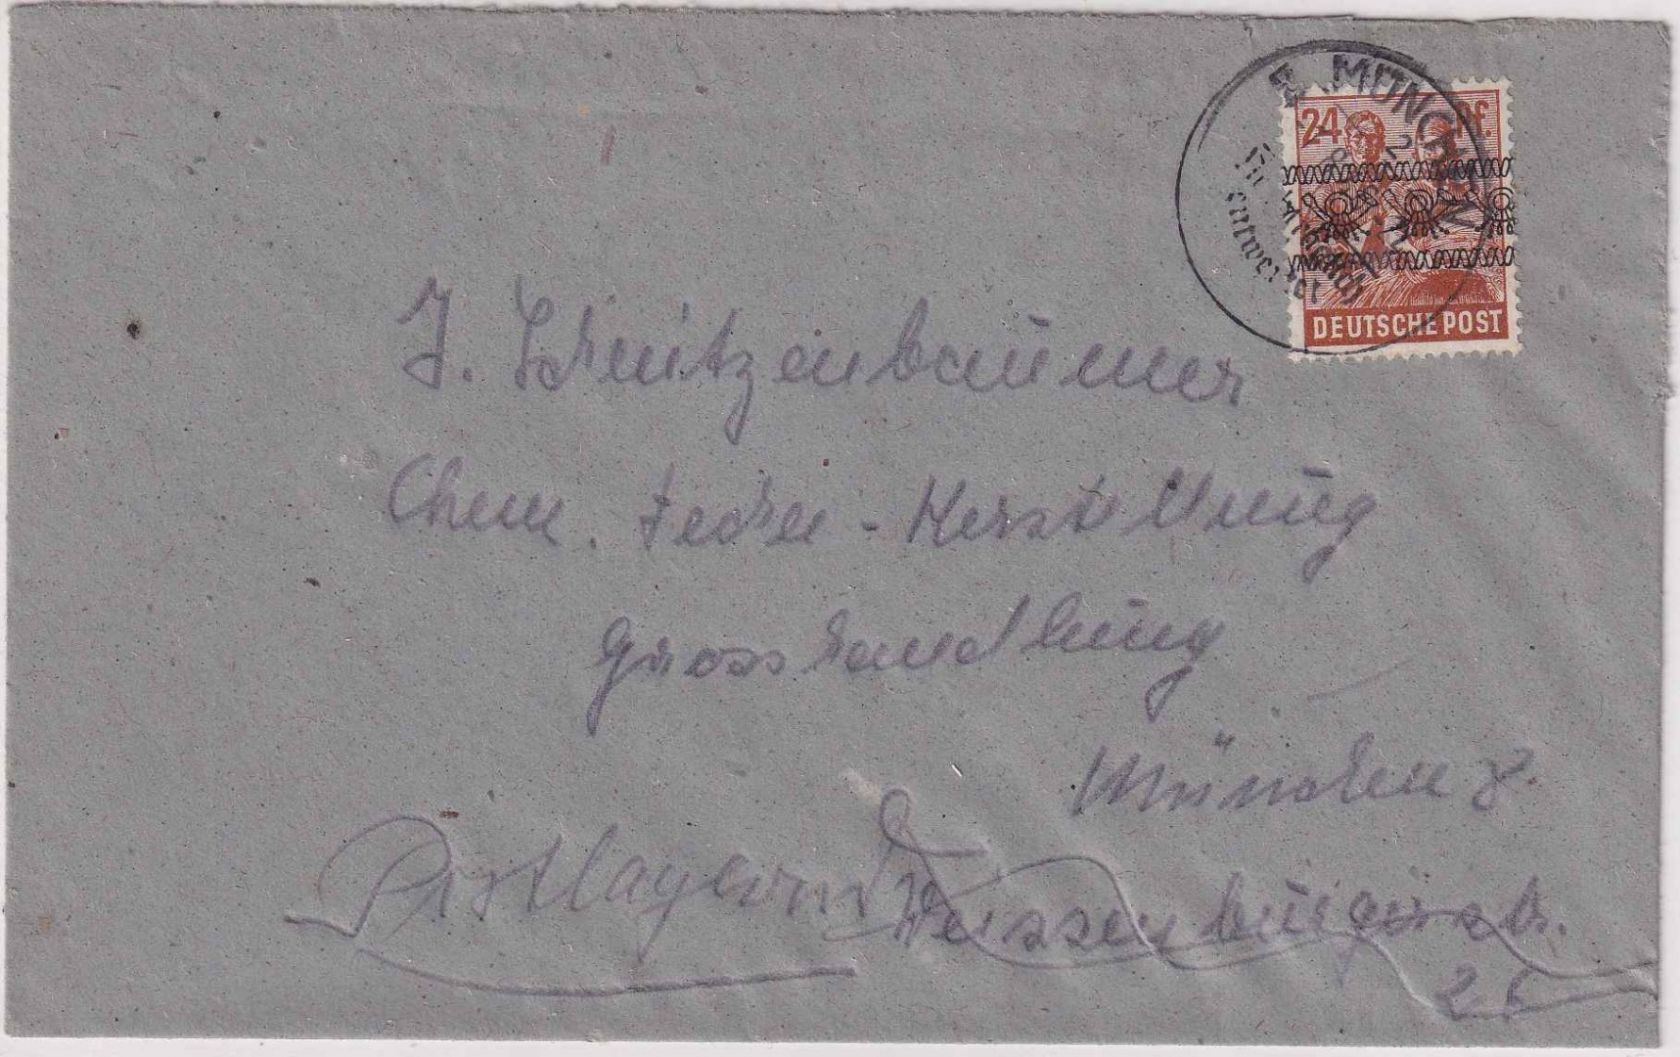 MÜNCHEN
24 Pf.
nachträglich
entwertet
DEUTSCHE POST
J. Schnitzenbaumer
Chem. techn. - Herstellung
Grosshandlung
München 8.
Postlagernd
Weissenburgerstr.
26